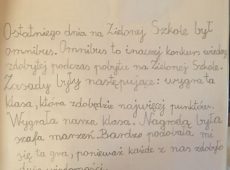 Ostatniego dnia na Zielonej Szkole był
omnibus. Omnibus to inaczej konkurs wiedzy
zdobytej podczas pobytu na Zielonej Szkole.
Zasady były następujące: wygra ta
klasa, która zdobędzie najwięcej punktów.
Wygrała nasza klasa. Nagrodą była
szafa marzeń. Bardzo podobała mi
się ta gra, ponieważ każde z nas zdobyło